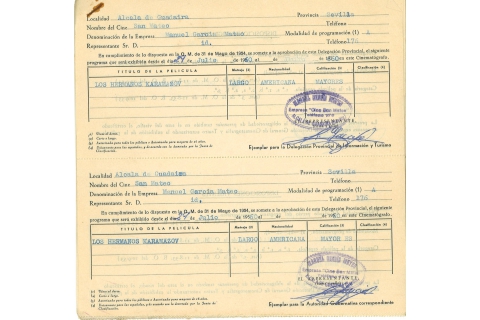 Localidad Alcala de Guadaira Provincia Sevilla
Nombre del Cine San Mateo Teléfono
Denominación de la Empresa Manuel Garcia Mateo Modalidad de programación (1) A
Representante Sr. D. id. Teléfono 176
En cumplimiento de lo dispuesto en la O. M. de 31 de Mayo de 1954, se somete a la aprobación de esta Delegación Provincial, el siguiente
programa que será exhibido desde el día 27 de Julio de 1960 en este Cinematógrafo.
TITULO DE LA PELÍCULA Metraje (2) Nacionalidad Calificación (3) Clasificación (4)
LOS HERMANOS KARAMAZOV LARGO AMERICANA MAYORES
Empresa "Cine San Mateo"
EL REPRESENTANTE,
(2) Corto o largo.
Ejemplar para la Delegación Provincial de Información y Turismo
Localidad Alcala de Guadaira Provincia Sevilla
Nombre del Cine San Mateo Teléfono
Denominación de la Empresa Manuel Garcia Mateo Modalidad de programación (1) A
Representante Sr. D. id. Teléfono 176
En cumplimiento de lo dispuesto en la O. M. de 31 de Mayo de 1954, se somete a la aprobación de esta Delegación Provincial, el siguiente
programa que será exhibido desde el día 27 de Julio de 1960 en este Cinematógrafo.
TITULO DE LA PELÍCULA Metraje (2) Nacionalidad Calificación (3) Clasificación (4)
LOS HERMANOS KARAMAZOV LARGO AMERICANA MAYOR ES
EL REPRESENTANTE,
(2) Corto o largo.
Ejemplar para la Autoridad Gubernativa correspondiente